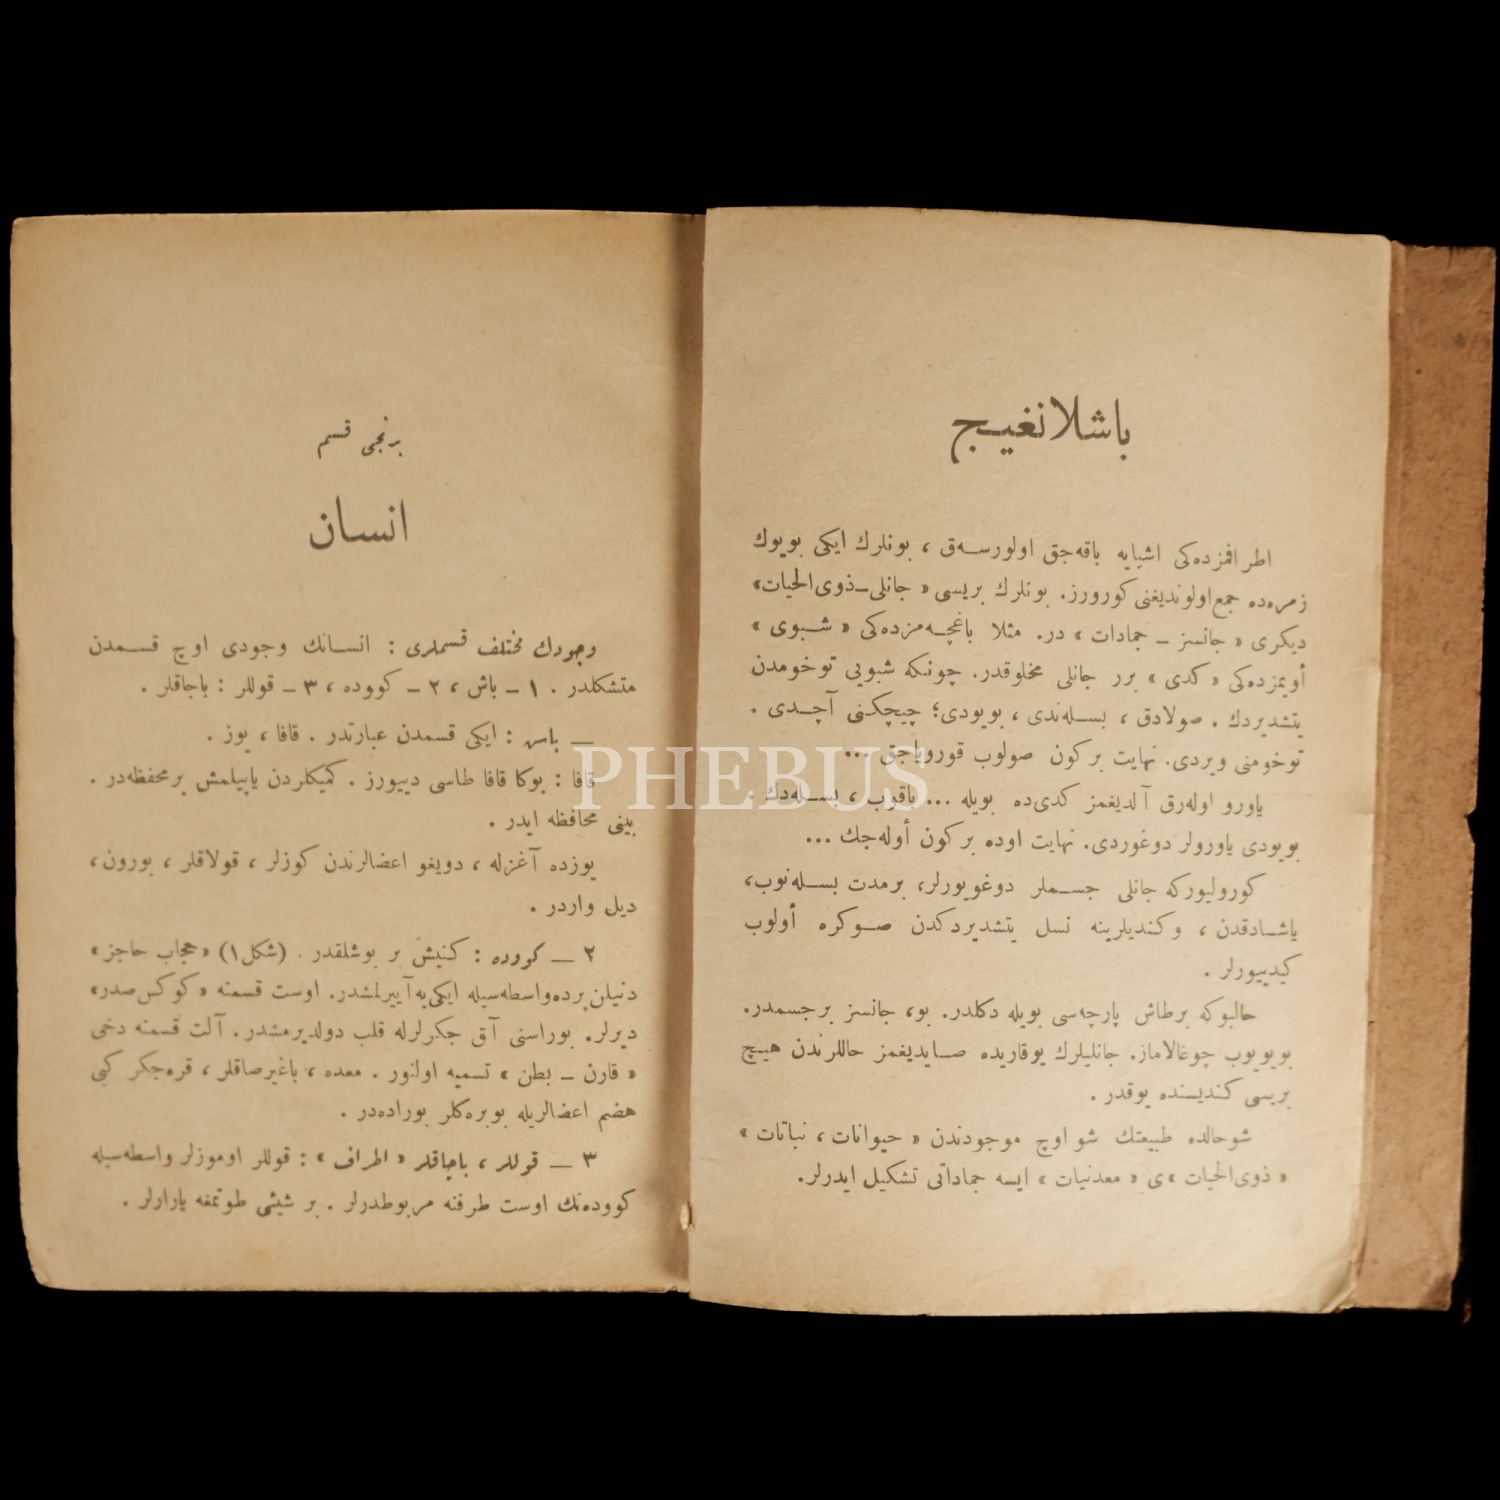 باشلانغیج
اطرافمزده‌كی اشیایه باقه‌جق اولورسه‌ق ، بونلرك ایكی بویوك
زمره‌ده جمع‌اولوندیغنی كورورز. بونلرك بریسی « جانلی_ذوی‌الحیات»
دیكری « جانسز _ جمادات » در. مثلا باغچه‌مزده‌كی « شـبوی »
أویمزده‌كی « كدی » برر جانلی مخلوقدر. چونكه شبویی توخومدن
یتشدیردك . صولادق ، بسله‌ندی ، بویودی؛ چیچكنی آچـدی .
توخومنی ویردی. نهایت بركون صولوب قورویاجق ...
یاورو اوله‌رق آلدیغمز كدی‌ده بویله ... باقوب ، بسـله‌دك .
بویودی یاورولر دوغوردی. نهایت اوده بركون أوله‌جك ...
كورولیوركه جانلی جسـملر دوغویورلر، برمدت بسـله‌نوب،
یاشـادقدن ، وكندیلرینه نسل یتشدیردكدن صـوكره أولوب
كیدییورلر .
حالبوكه برطاش پارچه‌سی بویله دكلدر. بو، جانسز برجسمدر.
بویویوب چوغالاماز. جانلیلرك یوقاریده صـایدیغمز حاللرندن هیـچ
بریسی كندیسنده یوقدر .
شوحالده طبیعتك شو اوچ موجودندن « حیوانات ، نباتات »
« ذوی‌الحیات » ی « معدنیات » ایسه جماداتی تشكیل ایدرلر.
برنجی قسم
انسـان
وجودك مختلف قسملری : انسـانك وجودی اوچ قسـمدن
متشكلدر . ١ _ باش ، ٢ _ كووده ، ٣ _ قوللر : باجاقلر .
_ باش : ایكی قسمدن عبارتدر . قافا ، یوز .
قافا : بوكا قافا طاسی دییورز . كمیكلردن یاپیلمش برمحفظه‌در .
بینی محافظه ایدر .
یوزده آغزله ، دویغو اعضالرندن كوزلر ، قولاقلر ، بورون ،
دیل واردر .
٢ _ كووده : كنیش بر بوشلقدر . (شكل١) « حجاب حاجز »
دنیلن‌پرده‌واسطه‌سیله ایكی‌یه‌آییرلمشدر. اوست قسمنه « كوكس‌صدر»
دیرلر. بوراسنی آق جكرلرله قلب دولدیرمشدر. آلت قسمنه دخی
« قارن _ بطن » تسمیه اولنور . معده ، باغیرصاقلر ، قره‌جكر كبی
هضم اعضالریله بوبره‌كلر بوراده‌در .
٣ _ قوللر ، باجاقلر « اطراف » : قوللر اوموزلر واسطه‌سیله
كووده‌نك اوست طرفنه مربوطدرلر . بر شیئی طوتمغه یارارلر .
PHEBUS